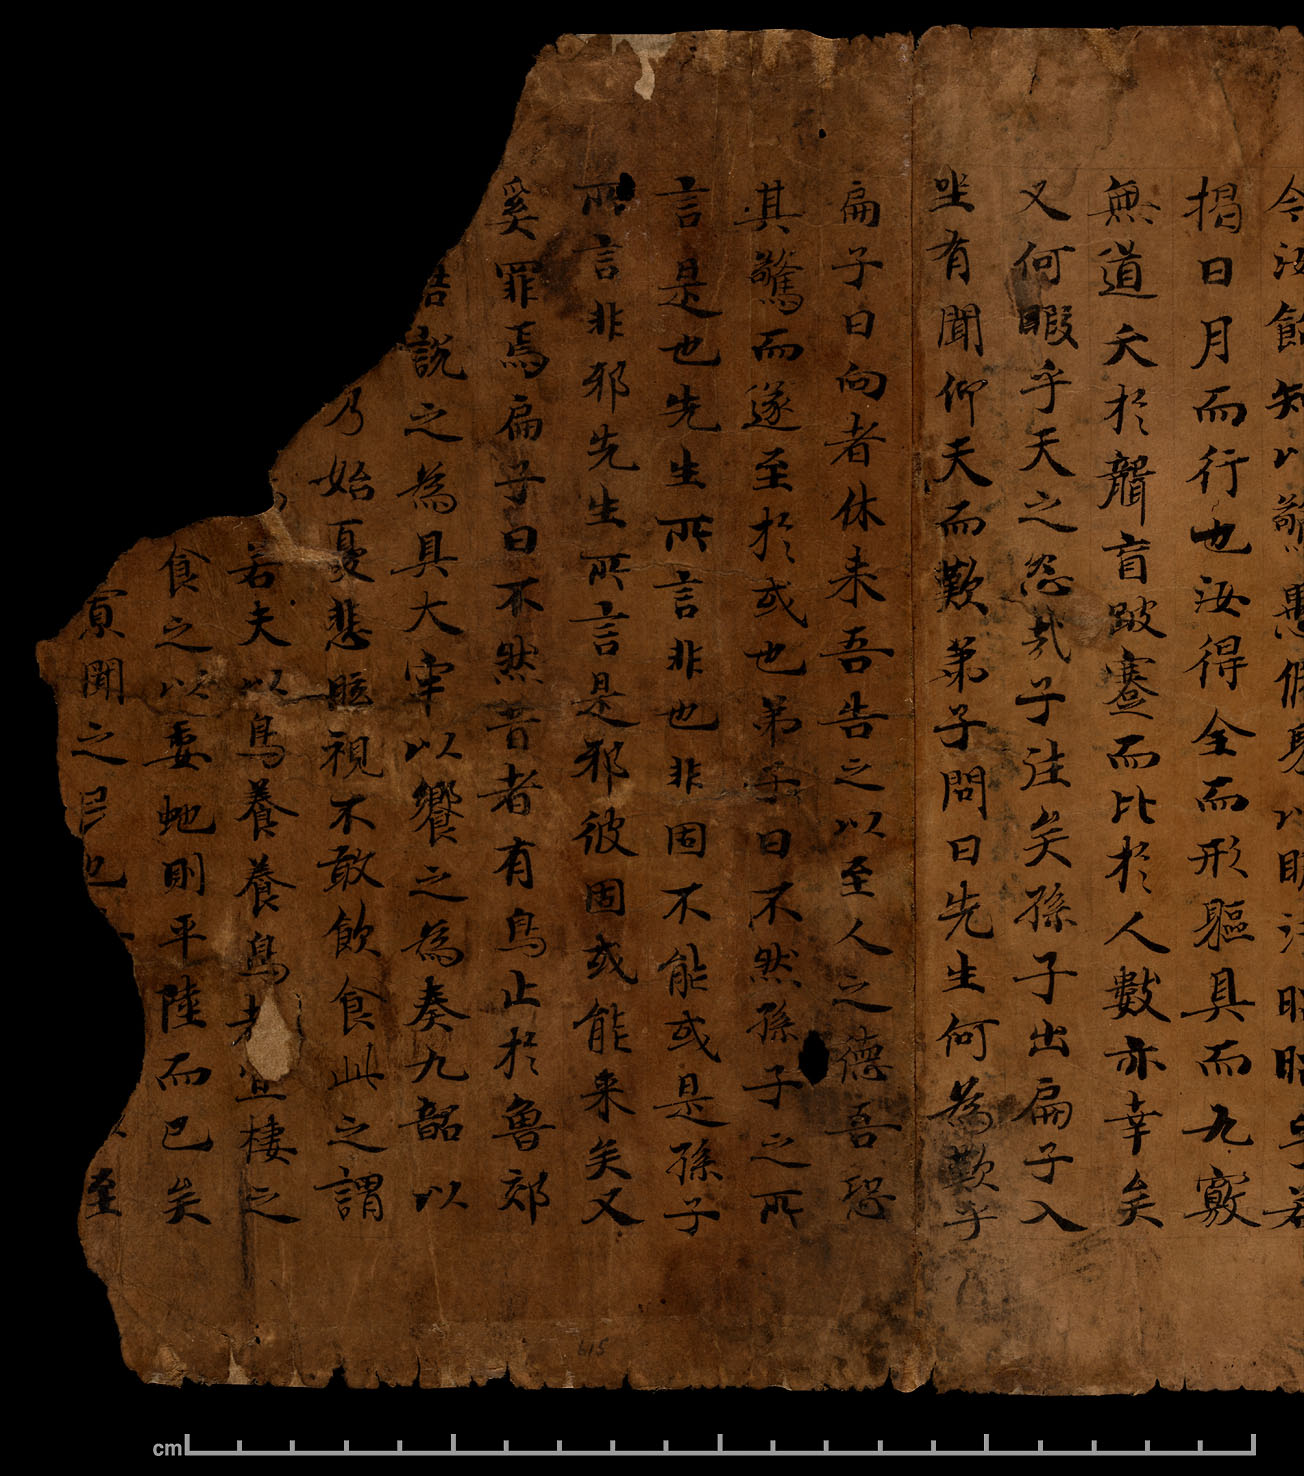 今汝飾知以驚愚脩身以明汙昭昭乎若
揭日月而行也汝得全而形軀具而九竅
無道夭於聾盲跛蹇而比於人數亦幸矣
又何暇乎天之怨哉子往矣孫子出扁子入
坐有聞仰天而歎弟子問曰先生何為歎乎
扁子曰向者休来吾告之以至人之德吾恐
其驚而遂至於或也弟子曰不然孫子之所
言是也先生所言非也非固不能或是孫子
所言非邪先生所言是邪彼固或能来矣又
奚罪焉扁子曰不然昔者有鳥止於魯郊
說之為具大牢以饗之為奏九韶以
乃始憂悲眩視不敢飲食此之謂
若夫以鳥養養鳥者宜棲之
食之以委虵則平陸而已矣
寡聞之民也至